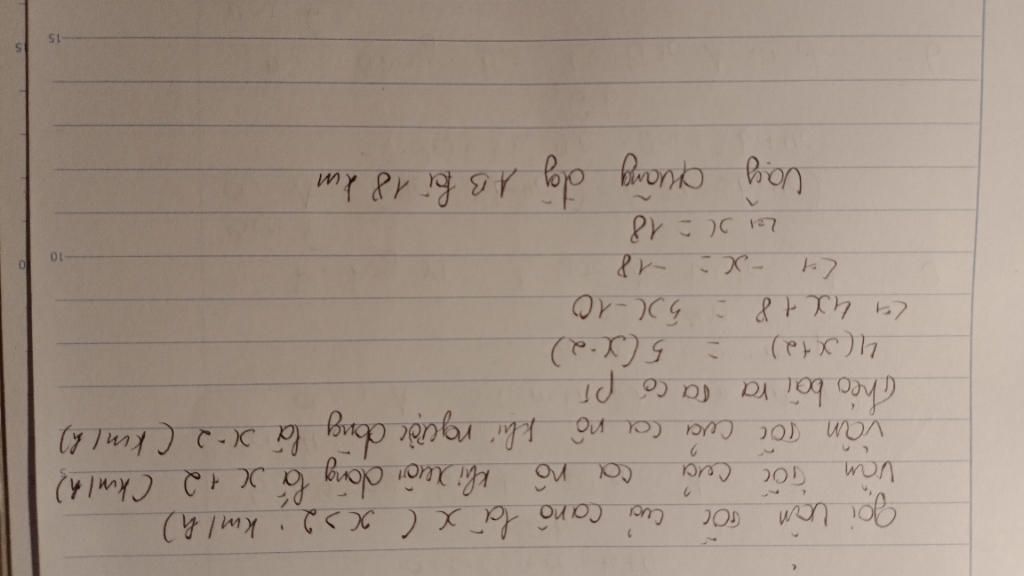 gọi vân tốc cuả canô là x ( x > 2 ; km/h)
vân tốc cuả ca nô khi xuôi dòng là x + 2 ( km/h)
vân tốc cuả ca nô khi ngược dòng là x - 2 ( km/h)
theo bài ra ta có pt
4(x+2) = 5(x-2)
<=> 4x + 8 = 5x - 10
<=> -x = -18
<=> x = 18
Vậy quãng đg AB là 18 km
10
15